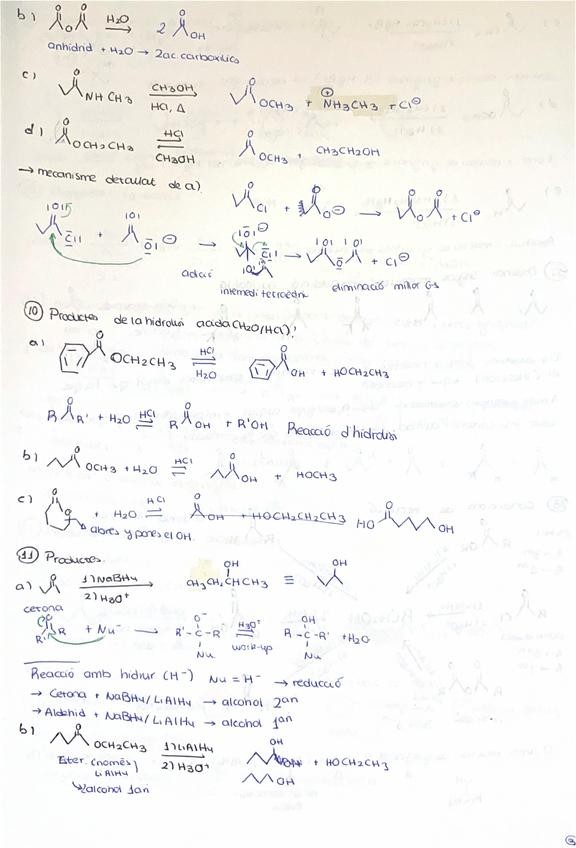 b) O O H2O → 2 O OH
anhidrid + H2O → 2 ac. carboxílics
c) O NHCH3 CH3OH HCl, Δ → O OCH3 + ⊕ NH3CH3 + Cl⊖
d) O OCH2CH3 HCl ⇌ CH3OH O OCH3 + CH3CH2OH
→ mecanisme detallat de a)
O Cl + O O⊖ → O O O + Cl⊖
|O| Cl| + |O| O| ⊖ → |O|⊖ Cl| → |O| |O| O + Cl⊖
adició
intermedi tetraèdr eliminació millor GS
⑩ Productes de la hidròlisi àcida (H2O/HCl)!
a) O OCH2CH3 HCl ⇌ H2O O OH + HOCH2CH3
R O R' + H2O HCl ⇌ R O OH + R'OH Reacció d'hidròlisi
b) O OCH3 + H2O HCl ⇌ O OH + HOCH3
c) O O + H2O HCl ⇌ O OH + HOCH2CH2CH3 HO O OH
abres y pones el OH.
⑪ Productes.
a) O 1) NaBH4 2) H3O+ → OH CH3CH2CHCH3 ≡ OH
cetona
O R' R + Nu⁻ → O⁻ R'-C-R' Nu H3O+ ⇌ work-up OH R-C-R' Nu + H2O
Reacció amb hidrur (H⁻) Nu = H⁻ → reducció
→ Cetona + NaBH4/LiAlH4 → alcohol 2ari
→ Aldehid + NaBH4/LiAlH4 → alcohol 1ari
b) O OCH2CH3 1) LiAlH4 2) H3O+ → OH + HOCH2CH3
Ester (només LiAlH4)
OH
↳ alcohol 1ari
③